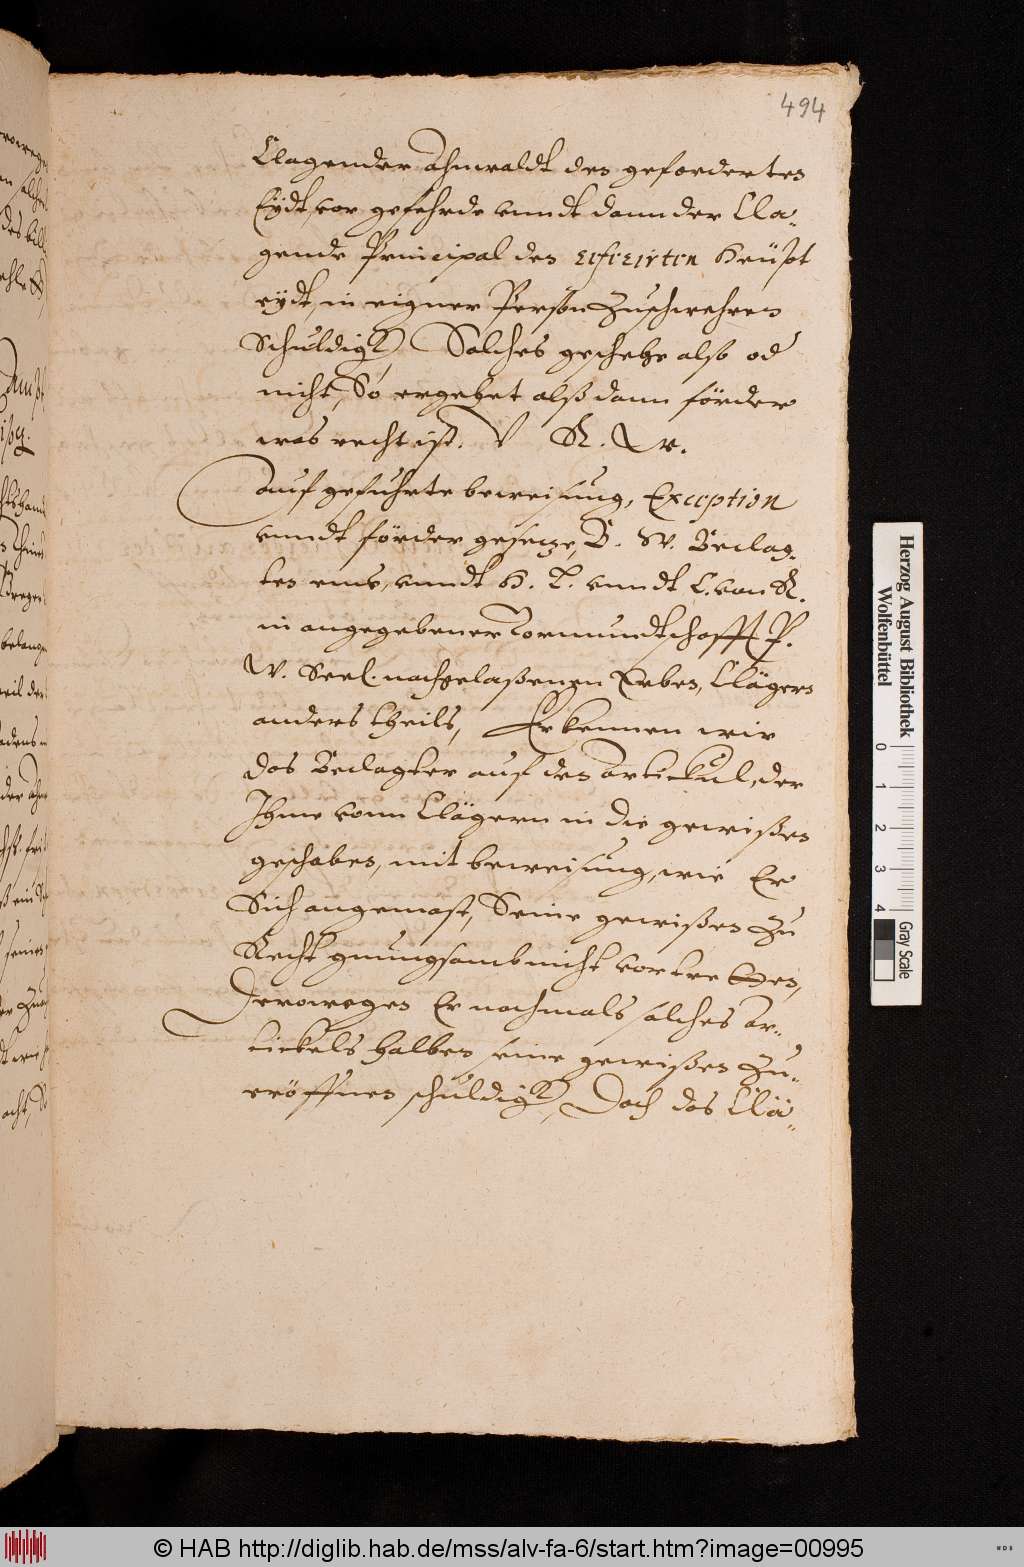 494
Clagender Ahnwaldt den geforderten
Eydt vor gefehrde vnndt dann der Cla„
gende Principal den referirten Heüpt
eydt, in eigner Person zuschwehren
Schuldigk, Solches geschehe also od
nicht, So ergehet alß dann förder
was recht ist. V R. W.
Auf gefuhrte beweisung, Exception
vnndt förder gesetze, B. W. Beclag„
ten eins, vnndt H. T. vnndt C. von R.
in angegebener Vormundtschafft P.
W. Seel. nachgelaßenen Erben, Clägern
anders theils, Erkennen wir
das Beclagter auf den Artickul, der
Ihme vonn Clägern in die gewißen
geschoben, mit beweisung, wie Er
Sich angemast, Seine gewißen zu
Recht gnungsamb nicht vortretten,
Derowegen Er nochmals solches Ar„
tickels halben seine gewißen zu„
eröffnen schuldigk, Doch das Clä„
Herzog August Bibliothek
Wolfenbüttel
0 1 2 3 4
Gray Scale
© HAB http://diglib.hab.de/mss/alv-fa-6/start.htm?image=00995